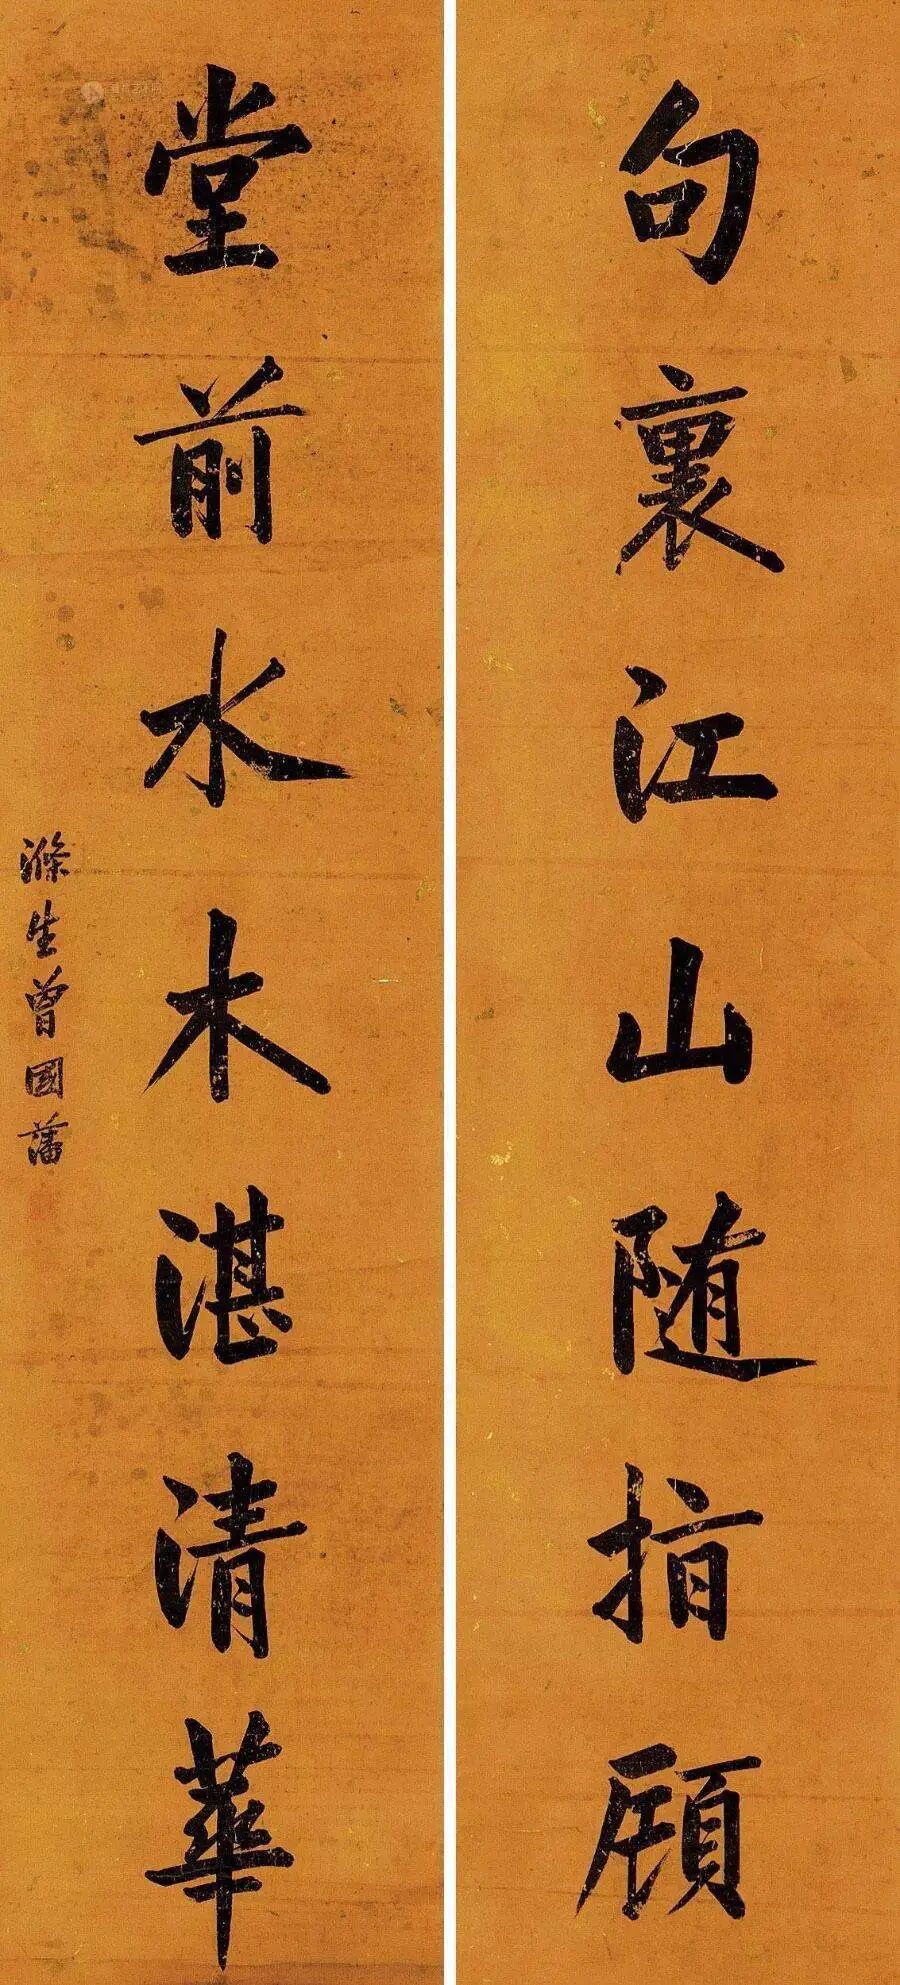 句裏江山随指顧
堂前水木湛清華
滌生曾國藩